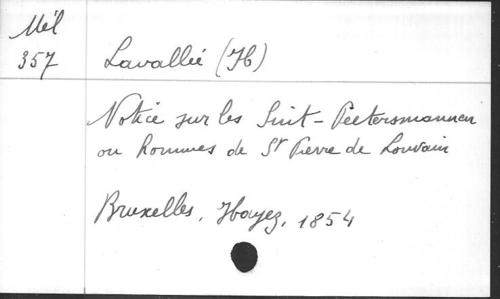 Mél
357
Lavallée (H)
Notice sur les Sint-Peetersmannen
ou hommes de St Pierre de Louvain
Bruxelles, Hayez, 1854